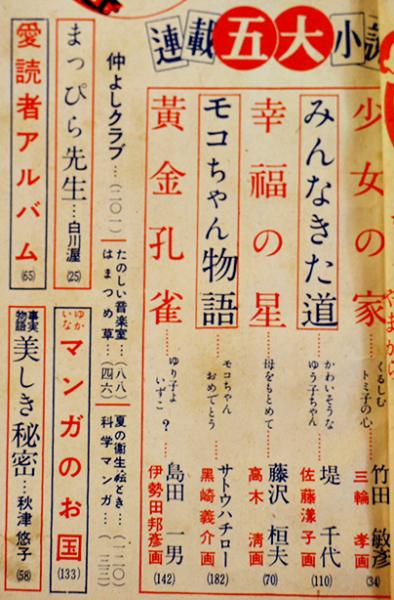 連載五大小説
少女の家
くるしむ
トミ子の心
竹田敏彦
三輪孝画
(34)
みんなきた道
かわいそうな
ゆう子ちゃん
堤千代
佐藤漾子画
(110)
幸福の星
母をもとめて
藤沢桓夫
高木清画
(70)
モコちゃん物語
モコちゃん
おめでとう
サトウハチロー
黒崎義介画
(182)
黄金孔雀
ゆり子よ
いずこ?
島田一男
伊勢田邦彦画
(142)
仲よしクラブ…(二〇一)
たのしい音楽室…(八八)
はまつめ草…(四六)
夏の衛生絵とき…(一二〇)
科学マンガ…(一三三)
まっぴら先生…白川渥(25)
ゆかいな マンガのお国(133)
愛読者アルバム(65)
事実物語 美しき秘密…秋津悠子(58)